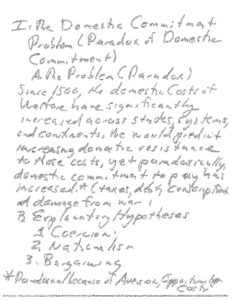 I. The Domestic Commitment
Problem (Paradox of Domestic
Commitment)
A. The Problem (Paradox)
Since 1500, the domestic costs of
Warfare have significantly
increased across states, systems,
and continents. We would predict
increasing domestic resistance
to those costs, yet paradoxically,
domestic commitment to pay has
increased.* (taxes, debt, conscription
damage from war)
B Explanatory Hypotheses
1. Coercion;
2. Nationalism
3. Bargaining
*Paradoxical because of Aversion, Opportunity
Costs